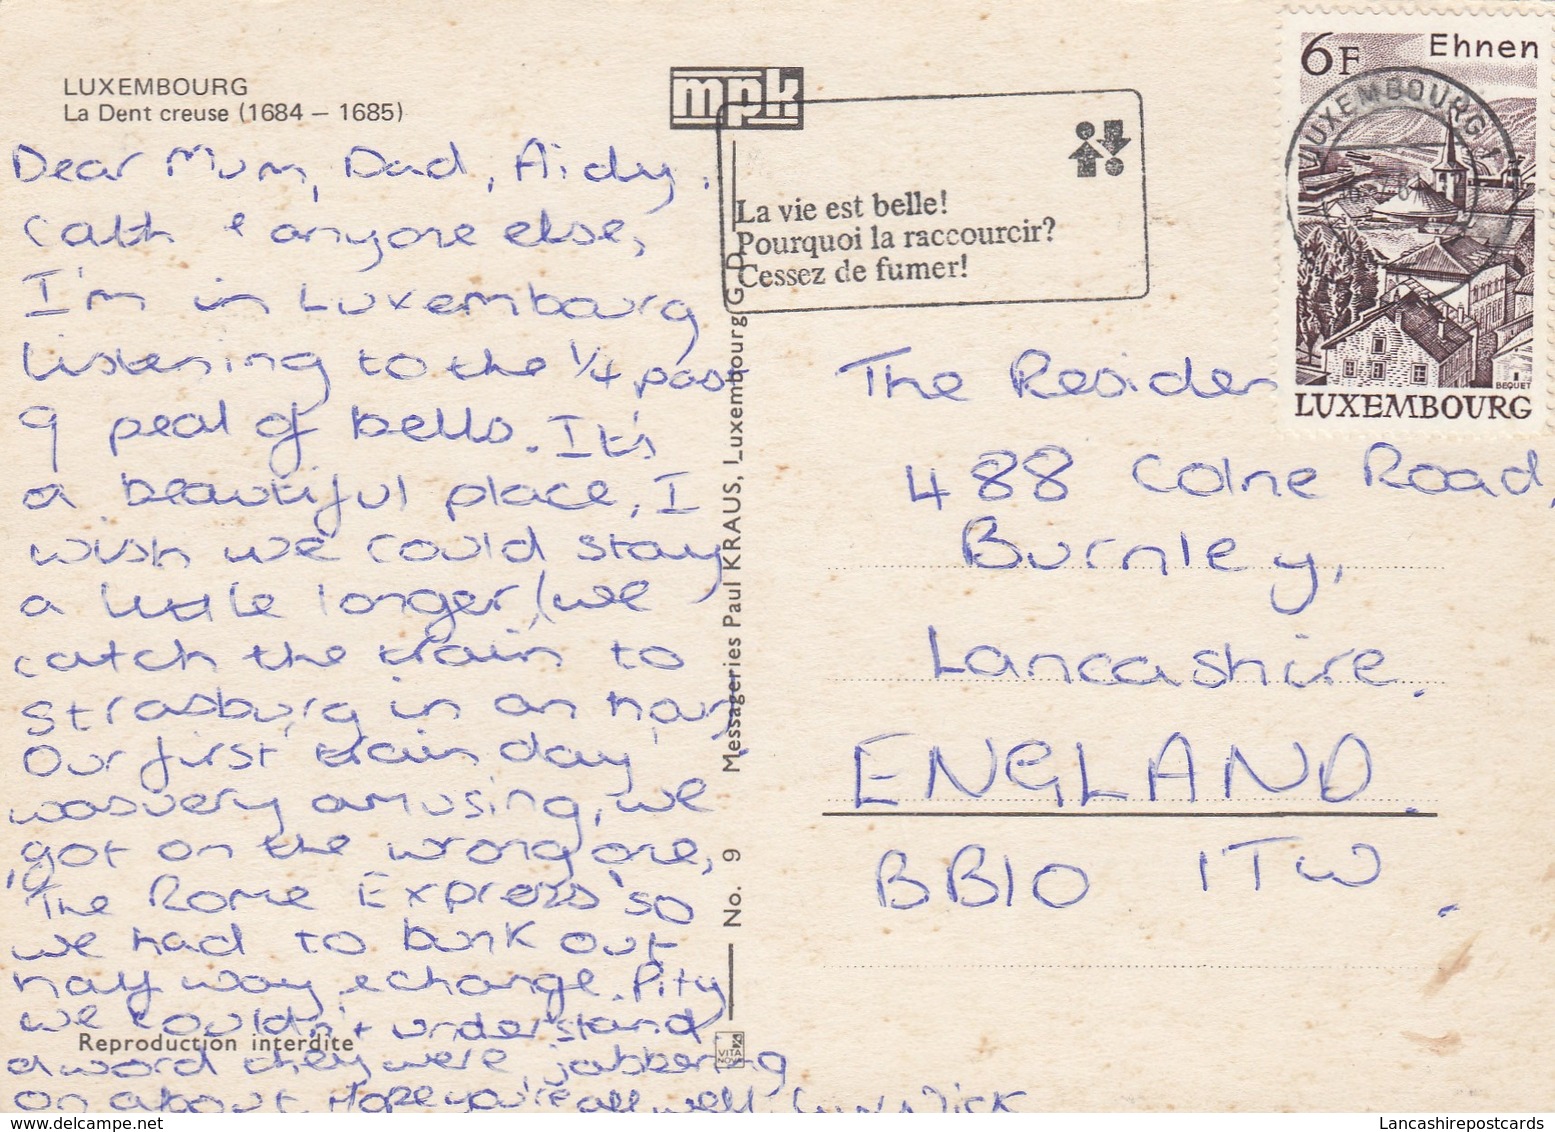 LUXEMBOURG
La Dent creuse (1684 – 1685)
mpk
Dear Mum, Dad, Aidy,
Cath & anyone else,
I'm in Luxembourg
listening to the 1/4 past
9 peal of bells. It's
a beautiful place, I
wish we could stay
a little longer, (we
catch the train to
Strasburg in an hour.
Our first train day
was very amusing, we
got on the wrong one,
'The Rome Express' so
we had to bunk out
half way & change. Pity
we couldn't understand
a word they were jabbering
on about. Hope you're all well. Nick
Reproduction interdite
No. 9 Messageries Paul KRAUS, Luxembourg G.D.
VITA NOVA
La vie est belle!
Pourquoi la raccourcir?
Cessez de fumer!
6F Ehnen
LUXEMBOURG 1
BEQUET
LUXEMBOURG
The Residen
488 Colne Road,
Burnley,
Lancashire.
ENGLAND.
BB10 1TW.
www.delcampe.net
Lancashirepostcards